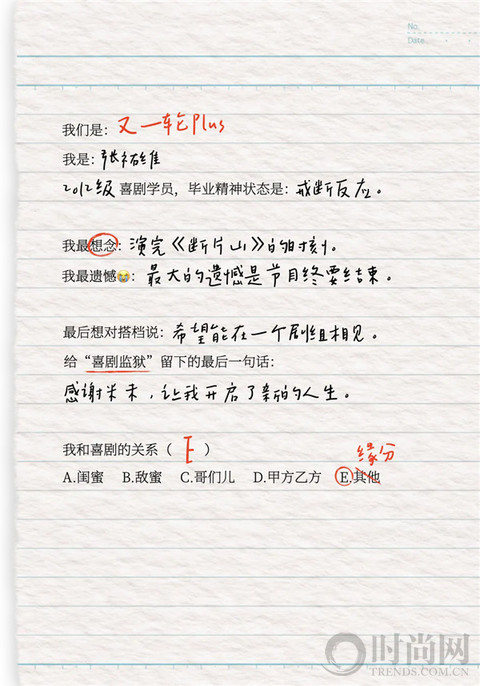 No.
Date.
我们是：又一轮Plus
我是：张祐维
2012级喜剧学员，毕业精神状态是：戒断反应。
我最想念：演完《断片山》的时刻。
我最遗憾😭：最大的遗憾是节目终要结束。
最后想对搭档说：希望能在一个剧组相见。
给“喜剧监狱”留下的最后一句话：
感谢米未，让我开启了新的人生。
我和喜剧的关系（ E ）
缘分
A.闺蜜 B.敌蜜 C.哥们儿 D.甲方乙方 E.其他
时尚网
TRENDS.COM.CN